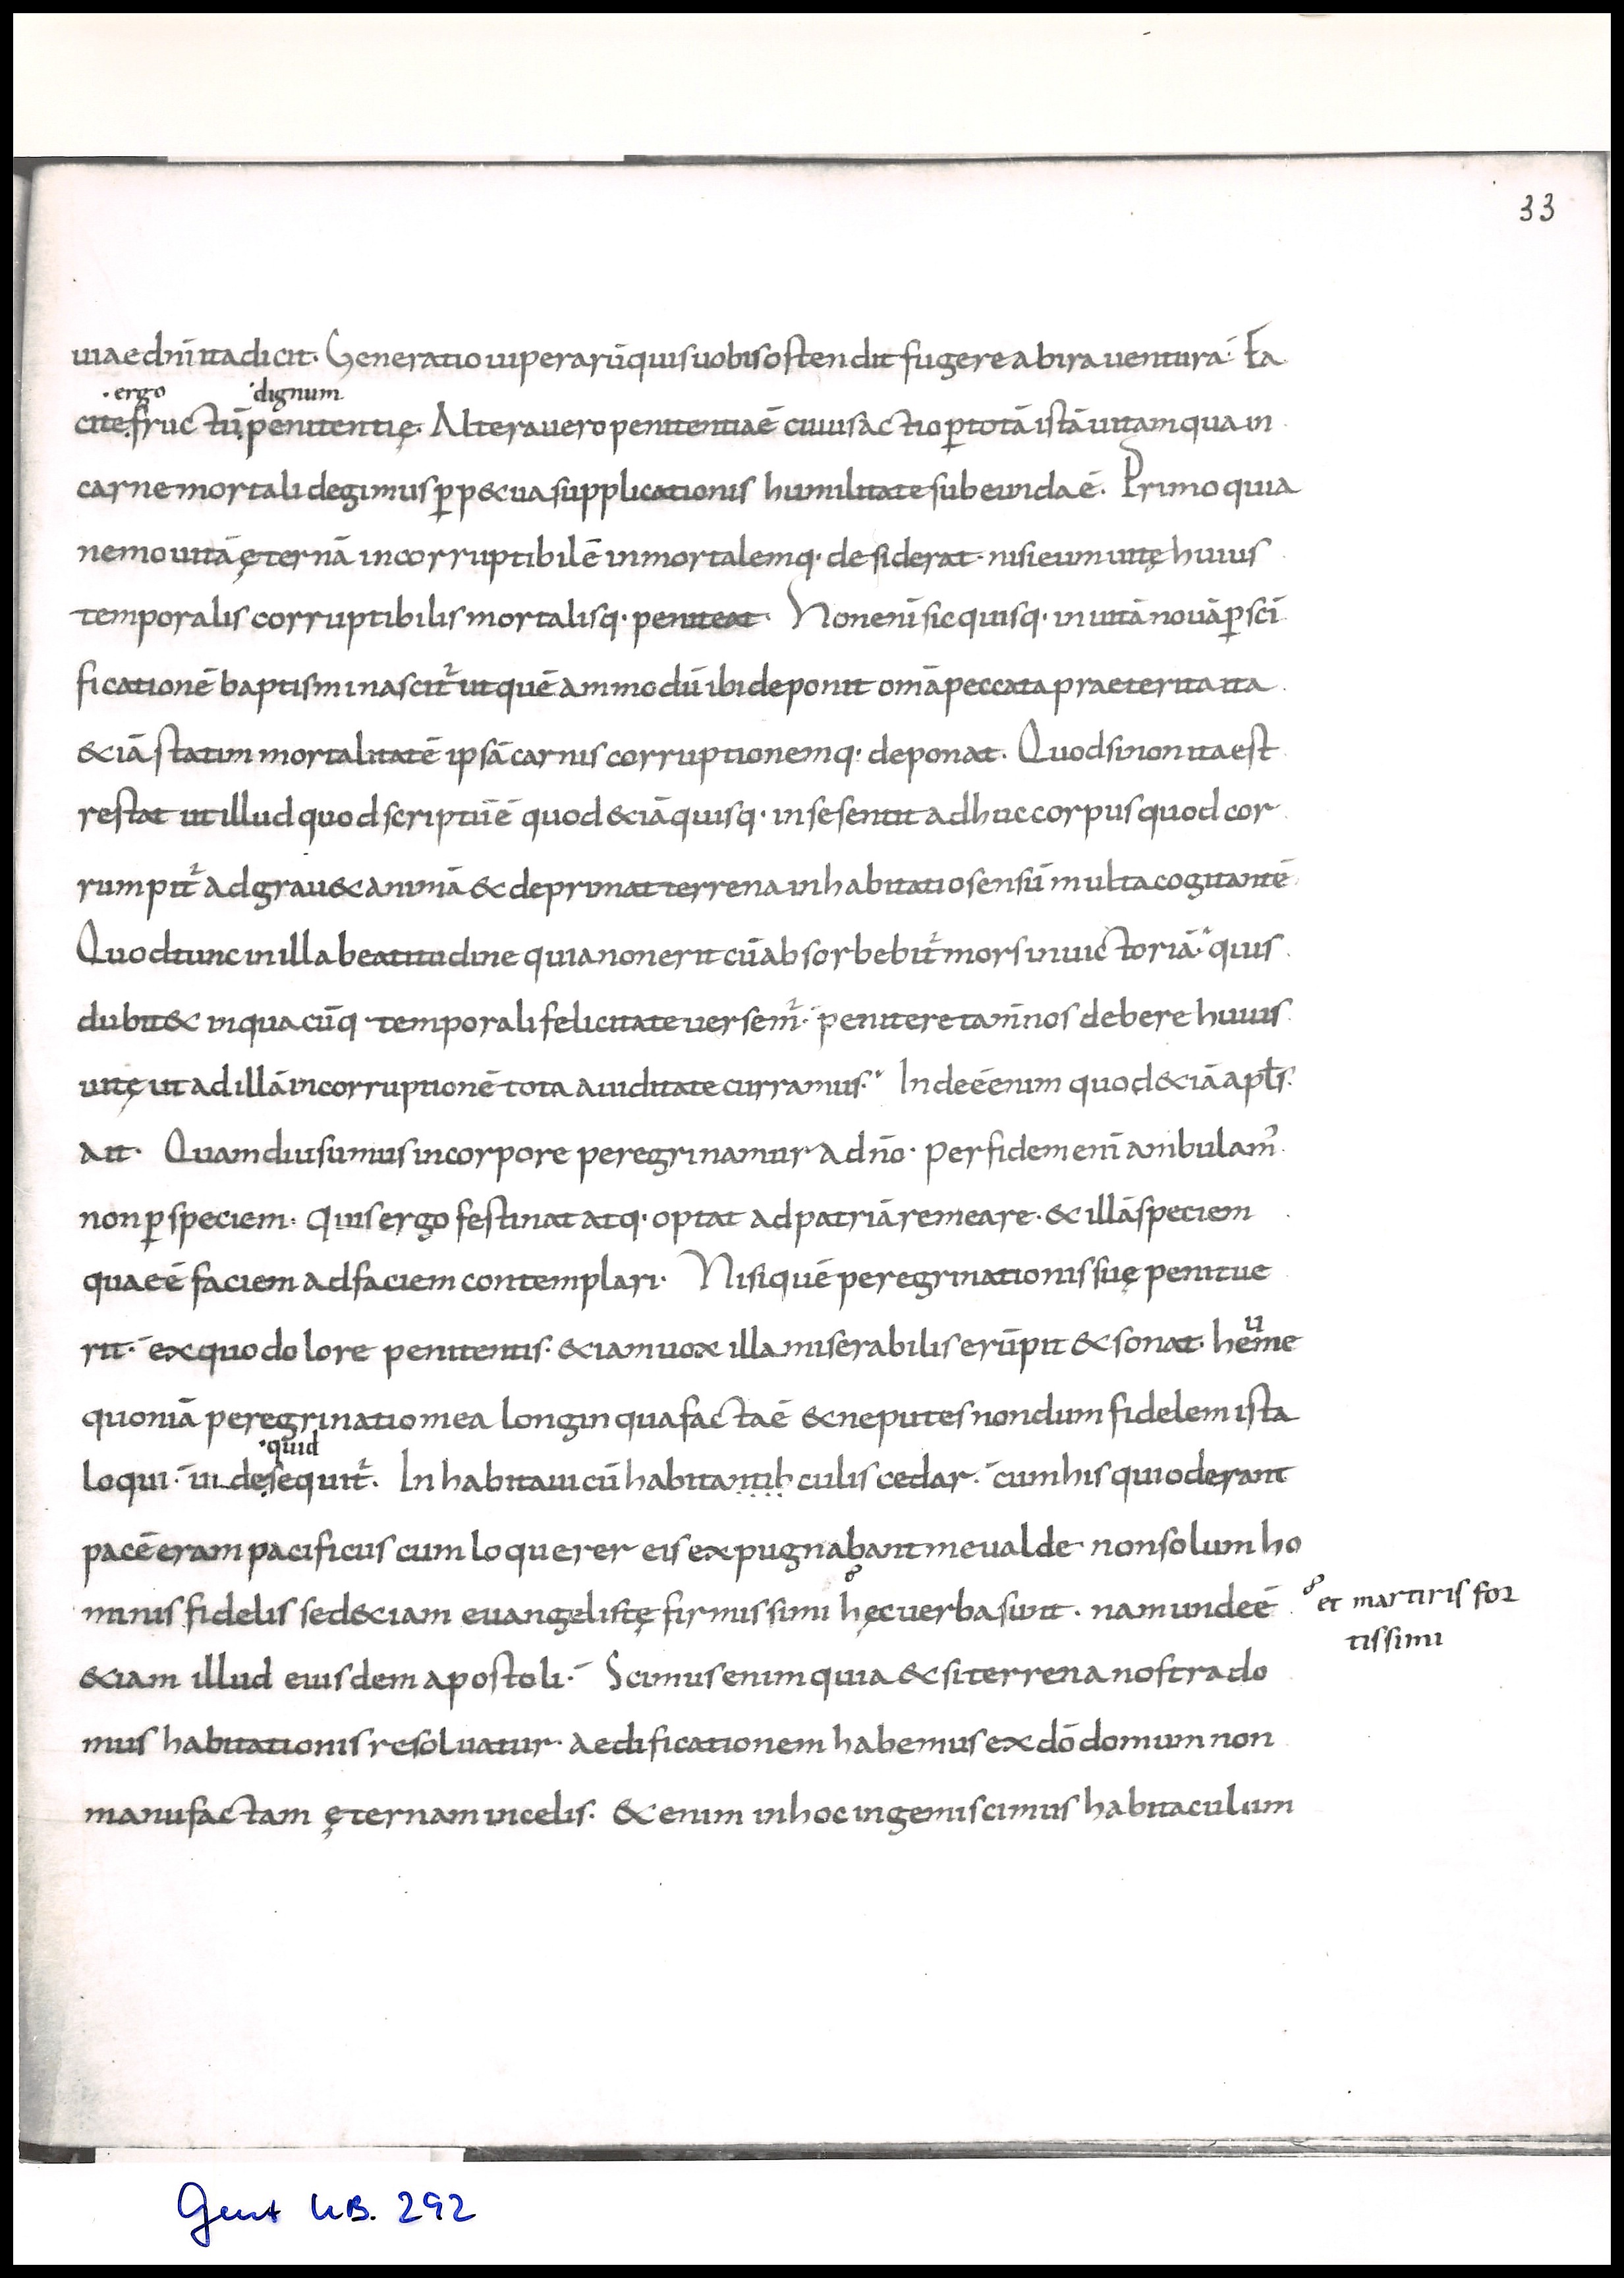 33
uiae dn̄i ita dicit. Generatio uiperarū quis uobis ostendit fugere ab ira uentura. Fa
·ergo ·dignum
cite fructū penitentię. Altera uero penitentia ē cuius actio ꝑ totā istā uitam qua in
carne mortali degimus ꝑp&ua supplicationis humilitate subeunda ē. Primo quia
nemo uitā ęternā incorruptibilē inmortalemq· desiderat· nisi eum uitę huius
temporalis corruptibilis mortalisq· peniteat· Non enī sic quisq· in uitā nouā ꝑ sc̄i
ficationē baptismi nascit᷑ ut quēammodū ibi deponit om̄a peccata praeterita ita
&iā statim mortalitatē ipsā carnis corruptionemq· deponat. Quod si non ita est
restat ut illud quod scriptū ē quod &iā quisq· in se sentit adhuc corpus quod cor
rumpit᷑ adgrau& animā & deprimat terrena inhabitatio sensū multa cogitantē
Quod tunc in illa beatitudine quia non erit cū absorbebit᷑ mors in uictoriā· quis
dubit& in quacūq· temporali felicitate uersem᷑· penitere tam̄ nos debere huius
uitę ut ad illā incorruptionē tota auiditate curramus· Inde ē enim quod &iā apł̄s
ait· Quamdiu sumus in corpore peregrinamur a dn̄o· per fidem enī ambulam᷒
non ꝑ speciem· Quis ergo festinat atq· optat ad patriā remeare· & illā speciem
quae ē faciem ad faciem contemplari· Nisi quē peregrinationis suę penitue
rit· ex quo dolore penitentis· &iam uox illa miserabilis erūpit & sonat· he͛ume
quoniā peregrinatio mea longinqua facta ē & ne putes nondum fidelem ista
·quid
loqui· uide sequit᷑. Inhabitaui cū habitantib culis cedar· cum his qui oderant
pacē eram pacificus cum loquerer eis expugnabant me ualde· non solum ho
minis fidelis sed &iam euangelistę firmissimi hęc uerba sunt· nam unde ē
et martiris for
tissimi
&iam illud eiusdem apostoli· Scimus enim quia & si terrena nostra do
mus habitationis resoluatur· aedificationem habemus ex dō domum non
manufactam ęternam in celis· &enim in hoc ingemiscimus habitaculum
Gent UB. 292